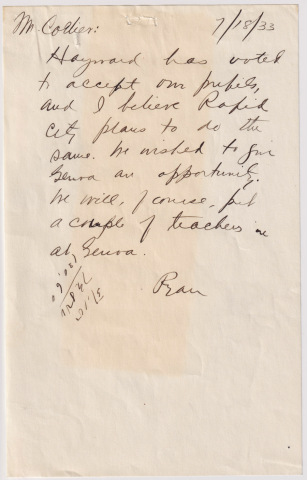 Mr. Collier: 7/18/33
Hayward has voted
to accept our pupils,
and I believe Rapid
City plans to do the
same. We wished to give
Genoa an opportunity.
We will, of course, put
a couple of teachers in
at Genoa.
Ryan